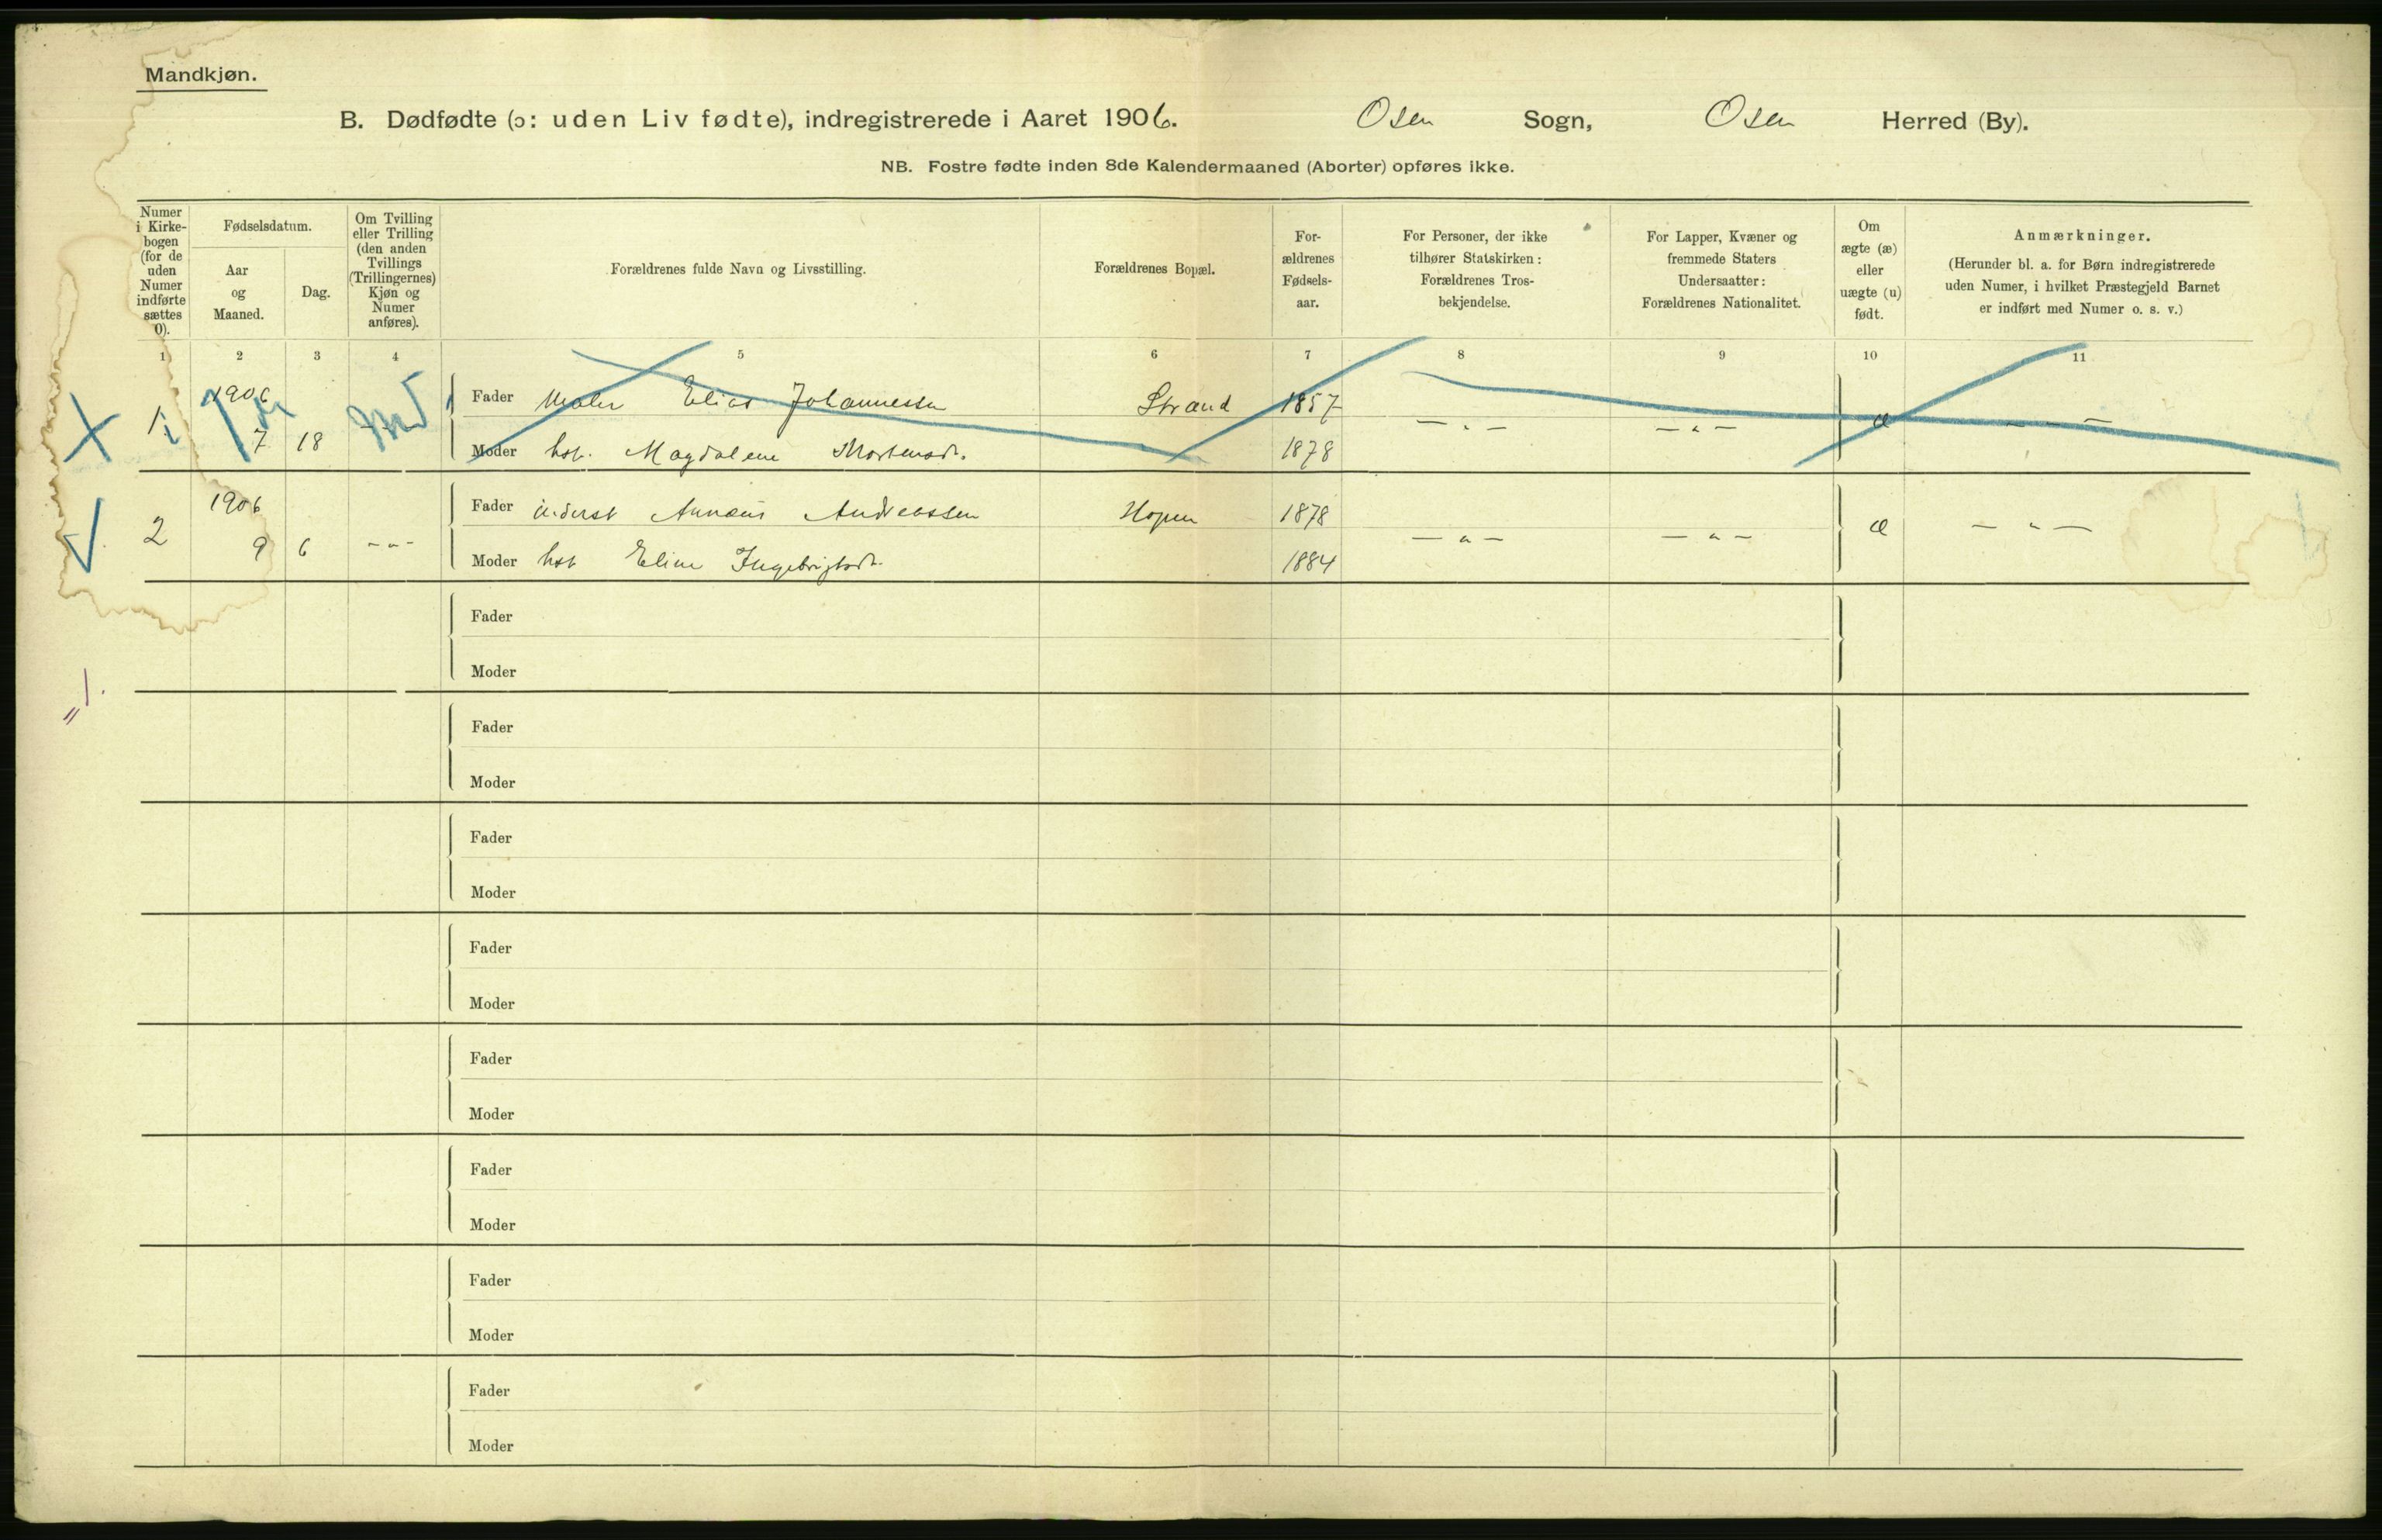 Mandkjøn.
B. Dødfødte (ɔ: uden Liv fødte), indregistrerede i Aaret 1906. Osen Sogn, Osen Herred (By).
NB. Fostre fødte inden 8de Kalendermaaned (Aborter) opføres ikke.
Numer i Kirkebogen (for de uden Numer indførte sættes 0).
Fødselsdatum.
Aar og Maaned.
Dag.
Om Tvilling eller Trilling (den anden Tvillings (Trillingernes) Kjøn og Numer anføres).
Forældrenes fulde Navn og Livsstilling.
Forældrenes Bopæl.
For-
ældrenes
Fødsels-
aar.
For Personer, der ikke
tilhører Statskirken:
Forældrenes Tros-
bekjendelse.
For Lapper, Kvæner og
fremmede Staters
Undersaatter:
Forældrenes Nationalitet.
Om
ægte (æ)
eller
uægte (u)
født.
Anmærkninger.
(Herunder bl. a. for Børn indregistrerede
uden Numer, i hvilket Præstegjeld Barnet
er indført med Numer o. s. v.)
1 2 3 4 5 6 7 8 9 10 11
1 1906 Fader Maler Elias Johannessen Strand 1857 æ
7 18 Moder hst. Magdalene Mortensdr. 1878
2 1906 Fader Inderst Andreassen Hopen 1878 æ
9 6 Moder hst Eline Ingebrigtsdr. 1884
Fader
Moder
Fader
Moder
Fader
Moder
Fader
Moder
Fader
Moder
Fader
Moder
Fader
Moder
Fader
Moder